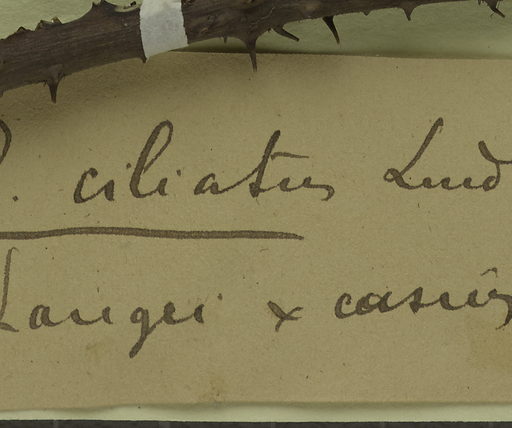 . ciliatus Lind
Langei × casius